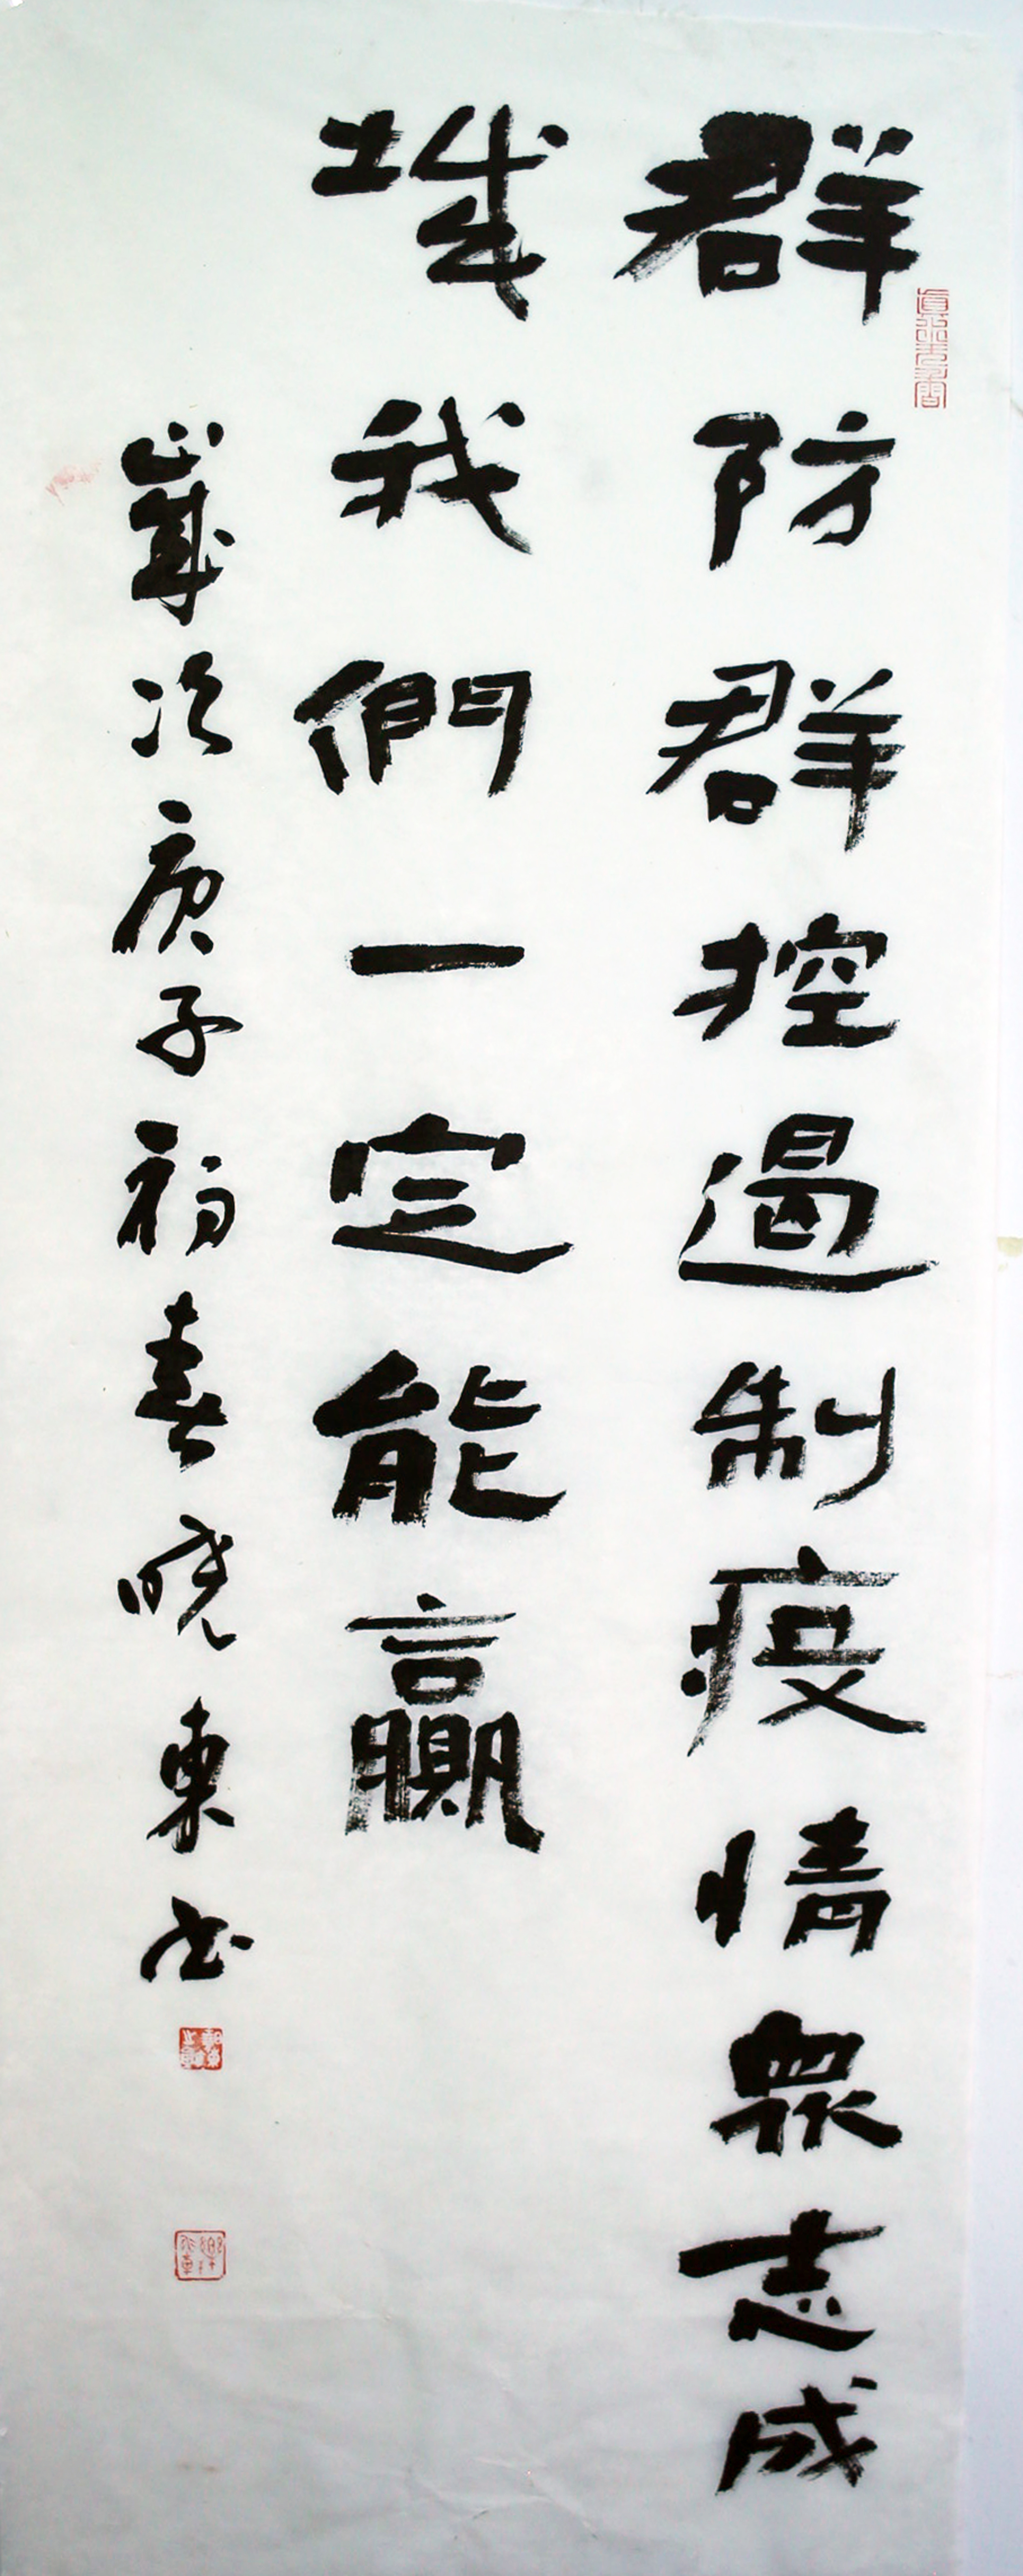 群防群控遏制疫情衆志成
城我們一定能贏
歲次庚子初春曉東书